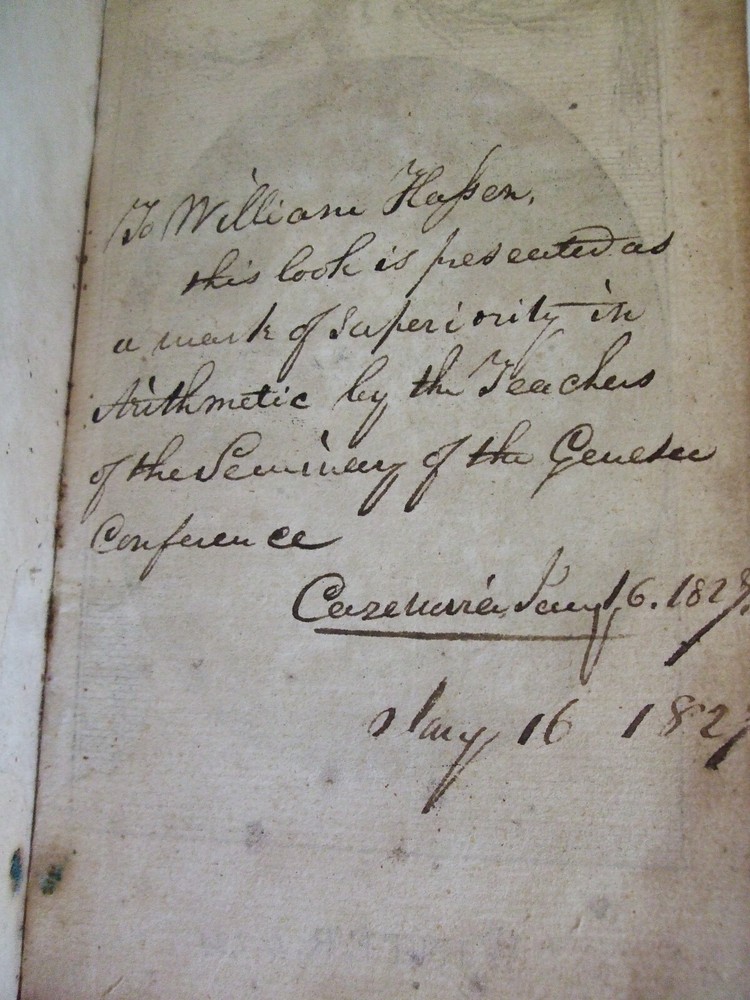 To William Haſsen,
this book is presented as
a mark of Superiority in
Arithmetic by the Teachers
of the Seminary of the Genesee
Conference
Cazenovia 16. 182
16 182